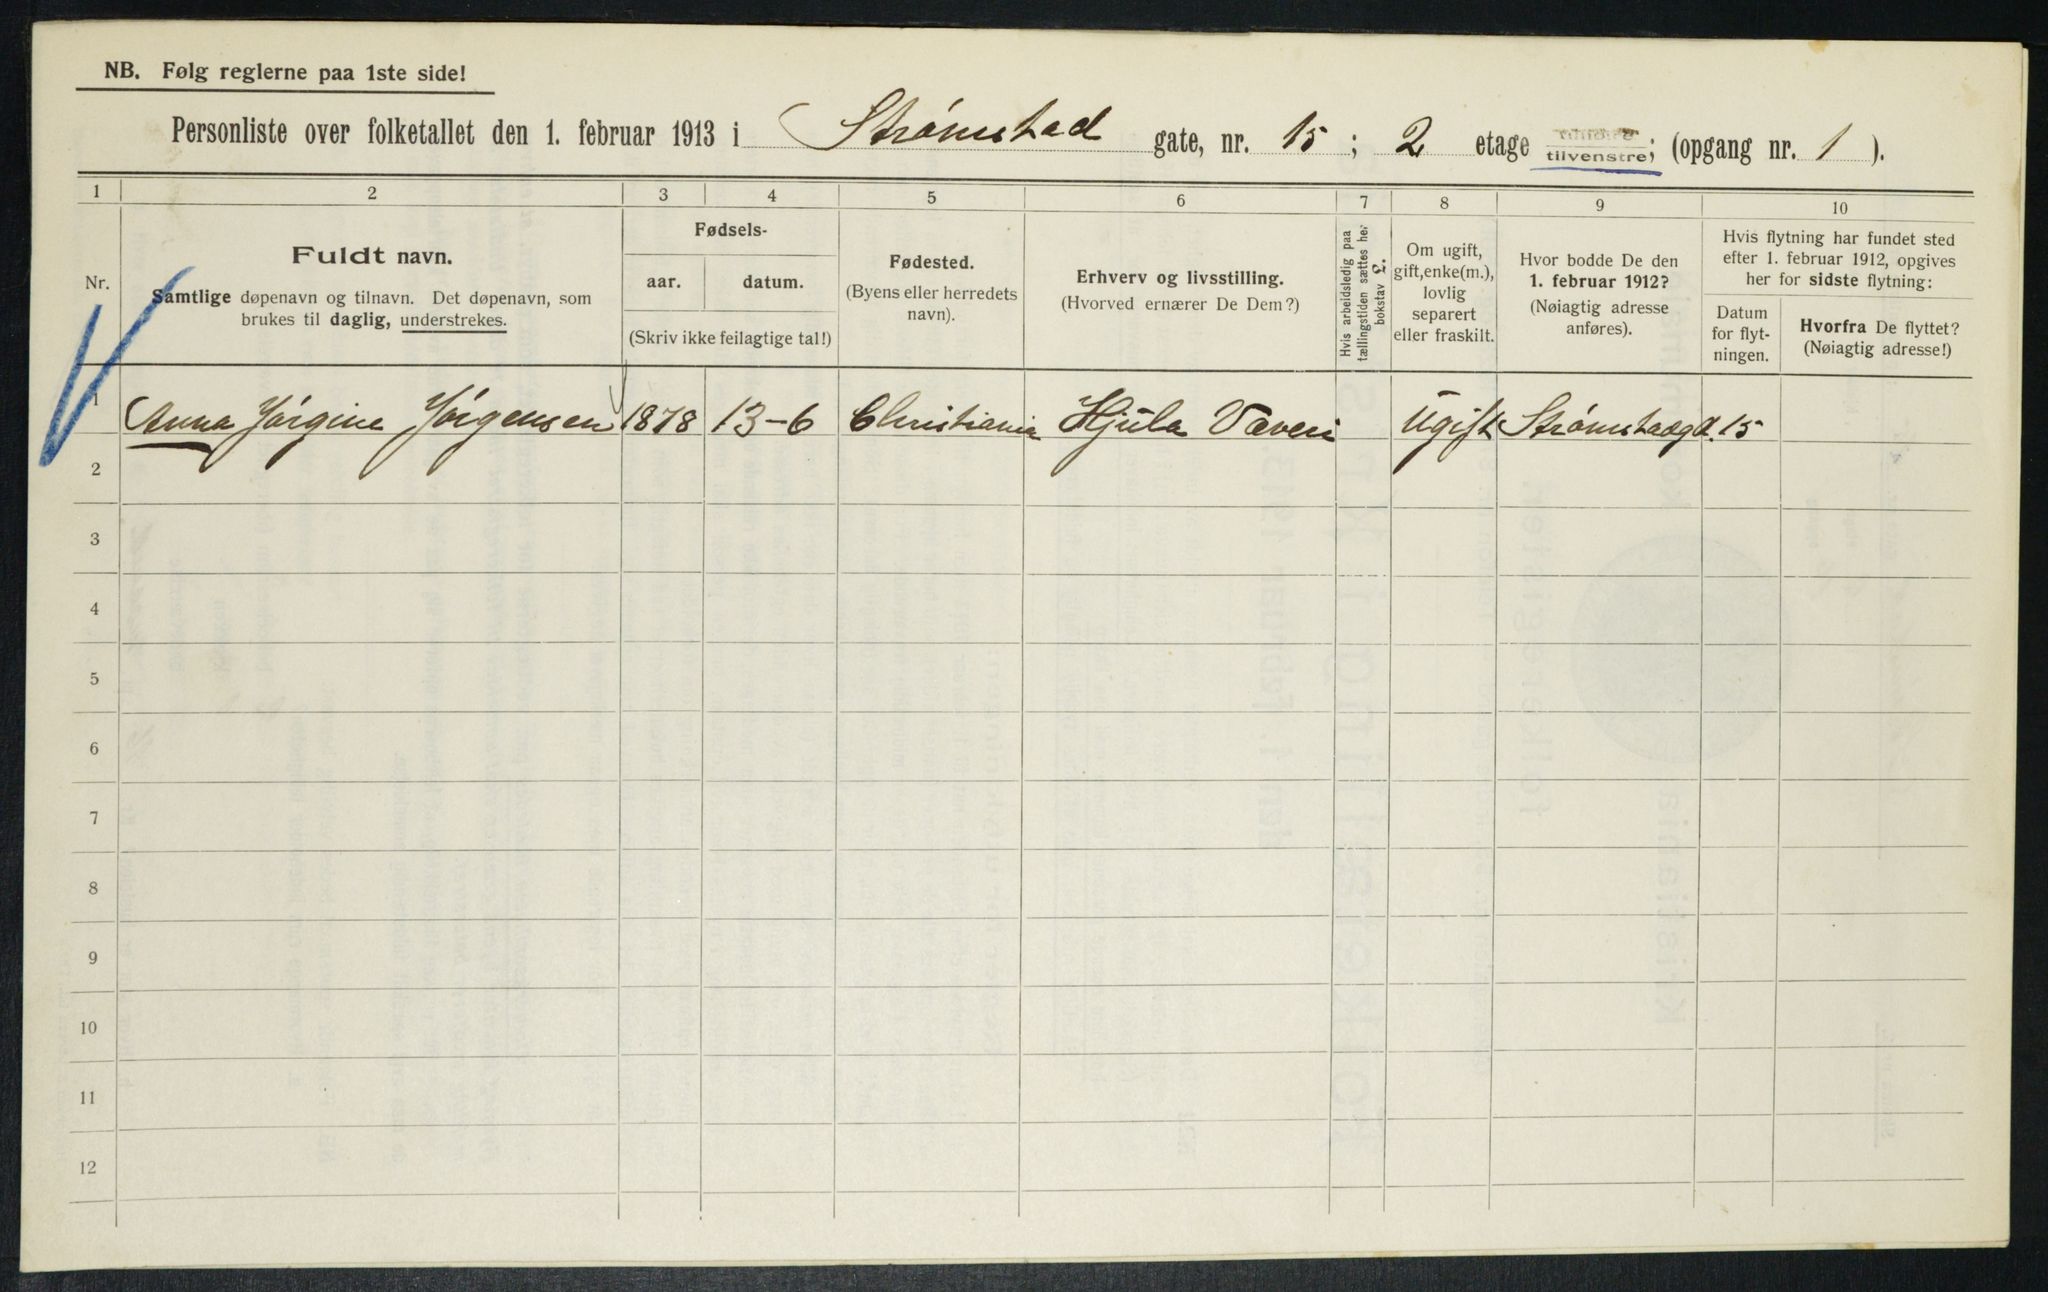 NB. Følg reglerne paa 1ste side!
Personliste over folketallet den 1. februar 1913 i Strømstad gate, nr. 15; 2 etage tilvenstre; (opgang nr. 1).
1 2 3 4 5 6 7 8 9 10
Nr.
Fuldt navn.
Samtlige døpenavn og tilnavn. Det døpenavn, som
brukes til daglig, understrekes.
Fødsels-
aar. datum.
(Skriv ikke feilagtige tal!)
Fødested.
(Byens eller herredets
navn).
Erhverv og livsstilling.
(Hvorved ernærer De Dem?)
Hvis arbeidsledig paa
tællingstiden sættes her
bokstav L.
Om ugift,
gift, enke(m.),
lovlig
separert
eller fraskilt.
Hvor bodde De den
1. februar 1912?
(Nøiagtig adresse
anføres).
Hvis flytning har fundet sted
efter 1. februar 1912, opgives
her for sidste flytning:
Datum
for flyt-
ningen.
Hvorfra De flyttet?
(Nøiagtig adresse!)
1 Anna Jørgine Jørgensen 1878 13-6 Christiania Hjula Væveri Ugift Strømstadgd. 15
2
3
4
5
6
7
8
9
10
11
12